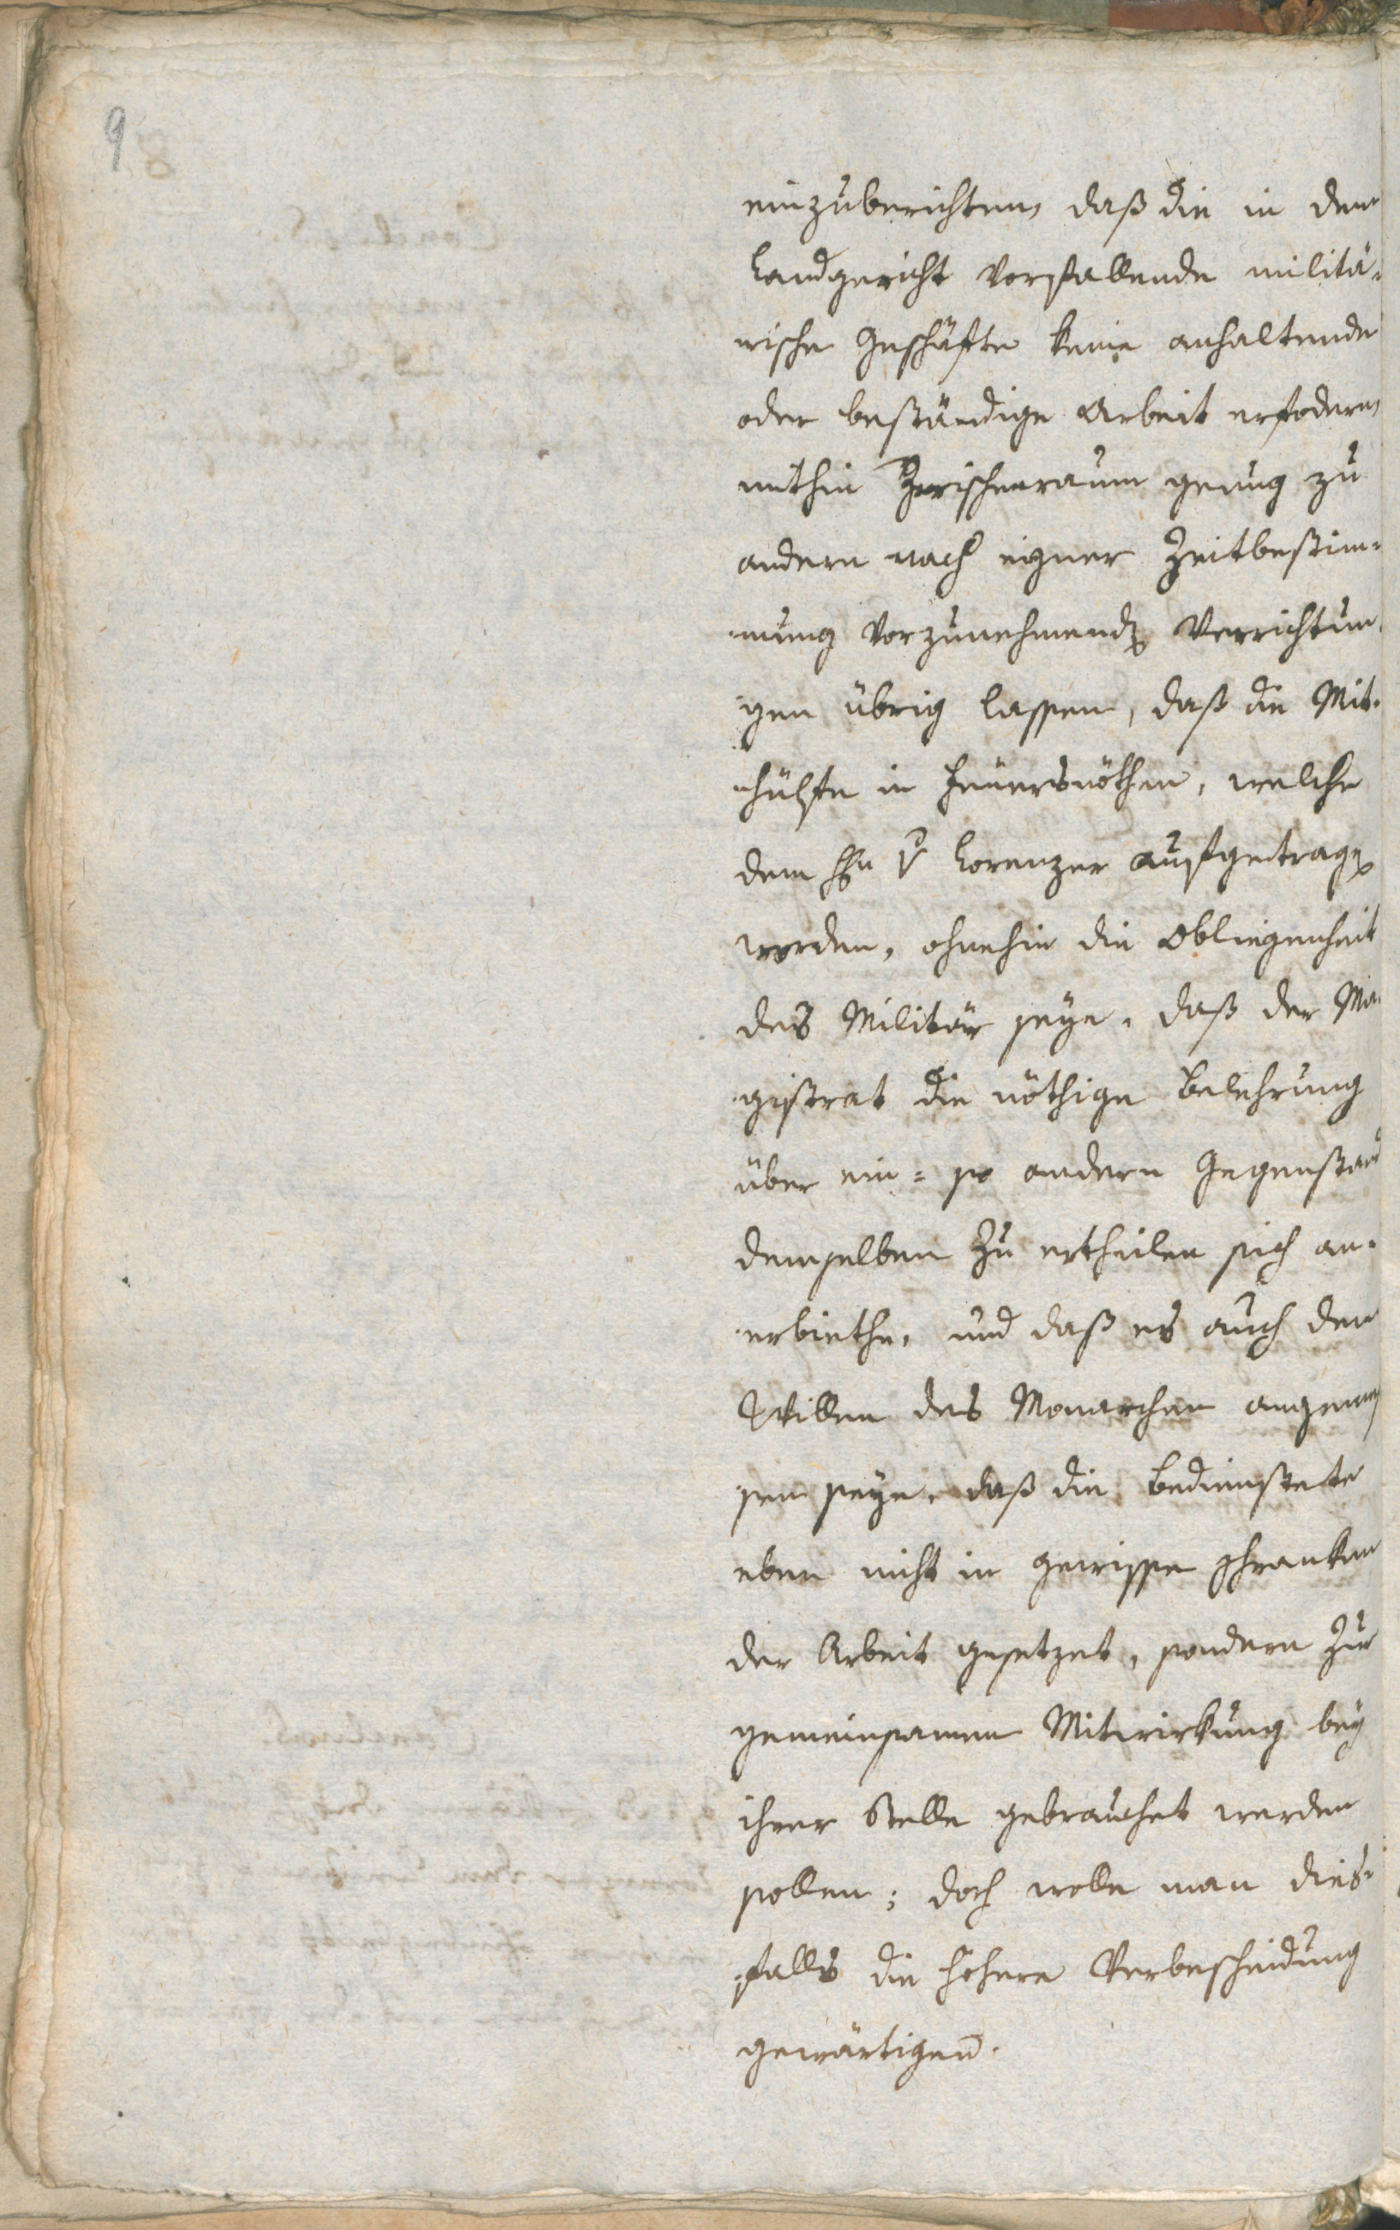 9
einzuberichten, daß die in dem
Landgericht vorfallende militä-
rische Geschäfte keine anhaltende
oder beständige Arbeit erfodern,
mithin Zwischenraum genug zu
andern nach eigner Zeitbestim-
mung vorzunehmenden Verrichtun-
gen übrig lassen, daß die Mit-
hülfe in Feuersnöthen, welche
dem Hn v Lorenzer aufgetragen
worden, ohnehin die Obliegenheit
des Militär seye, daß der Ma-
gistrat die nöthige Belehrung
über ein= so andern Gegenstand
demselben zu ertheilen sich an-
erbiethe, und daß es auch dem
Willen des Monarchen angemes
sen seye, daß die Bedienstete
eben nicht in gewisse schranken
der Arbeit gesetzet, sondern zur
gemeinsamen Mitwirkung bey
ihrer Stelle gebrauchet werden
sollen; doch wolle man dies-
falls die höhere Verbescheidung
gewärtigen.